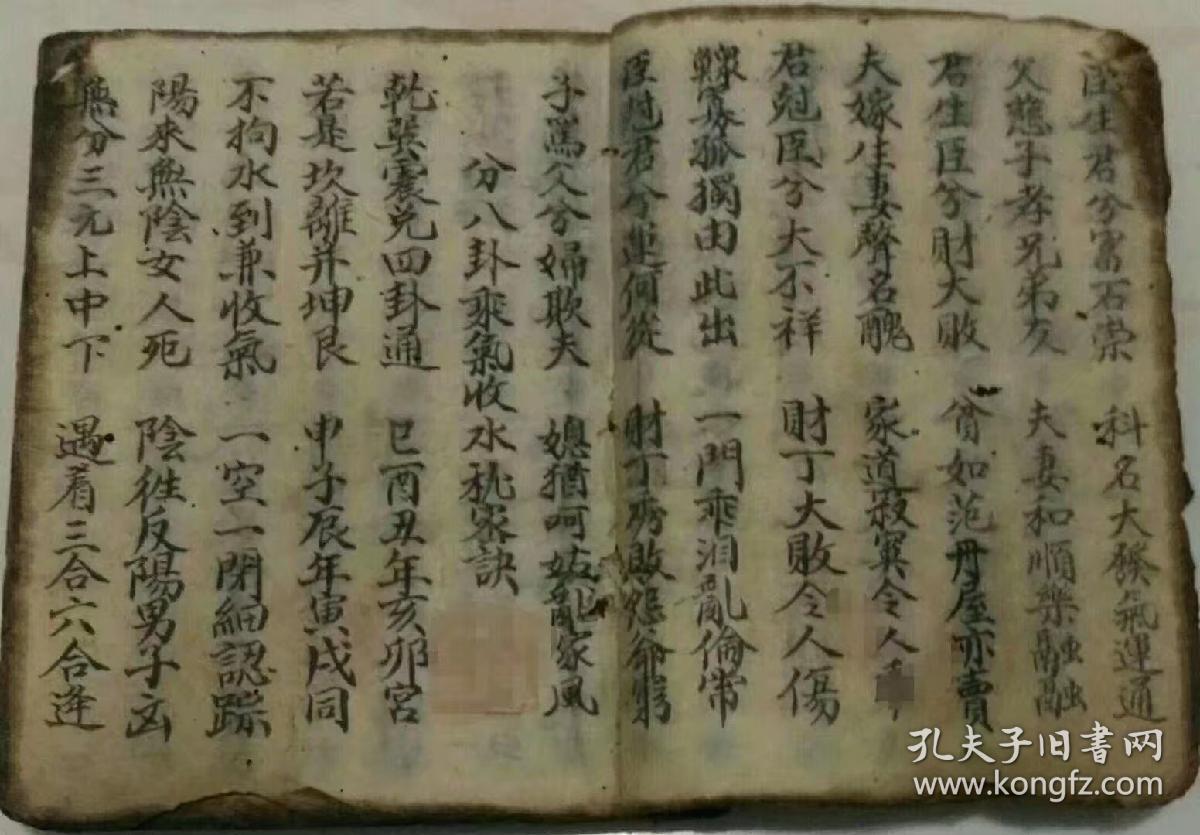 臣生君兮富石崇 科名大發氣運通
父慈子孝兄弟友 夫妻和順樂融融
君生臣兮財大敗 曾如范丹屋亦賣
夫嫁生妻聲名醜 家道寂寞令人
君尅臣兮大不祥 財丁大敗令人傷
鰥寡孤獨由此出 一門乖洎亂倫常
臣尅君兮運何從 財丁秀敗怨爺窮
子罵父兮婦欺夫 媳猶呵姑亂家風
分八卦乘氣收水秘密訣
乾巽震兌四卦通 巳酉丑年亥卯宮
若是坎離并坤艮 申子辰年寅戌同
不拘水到兼收氣 一空一閉細認踪
陽來無陰女人死 陰徃反陽男子凶
無分三元上中下 遇着三合六合逢
孔夫子旧书网
www.kongfz.com